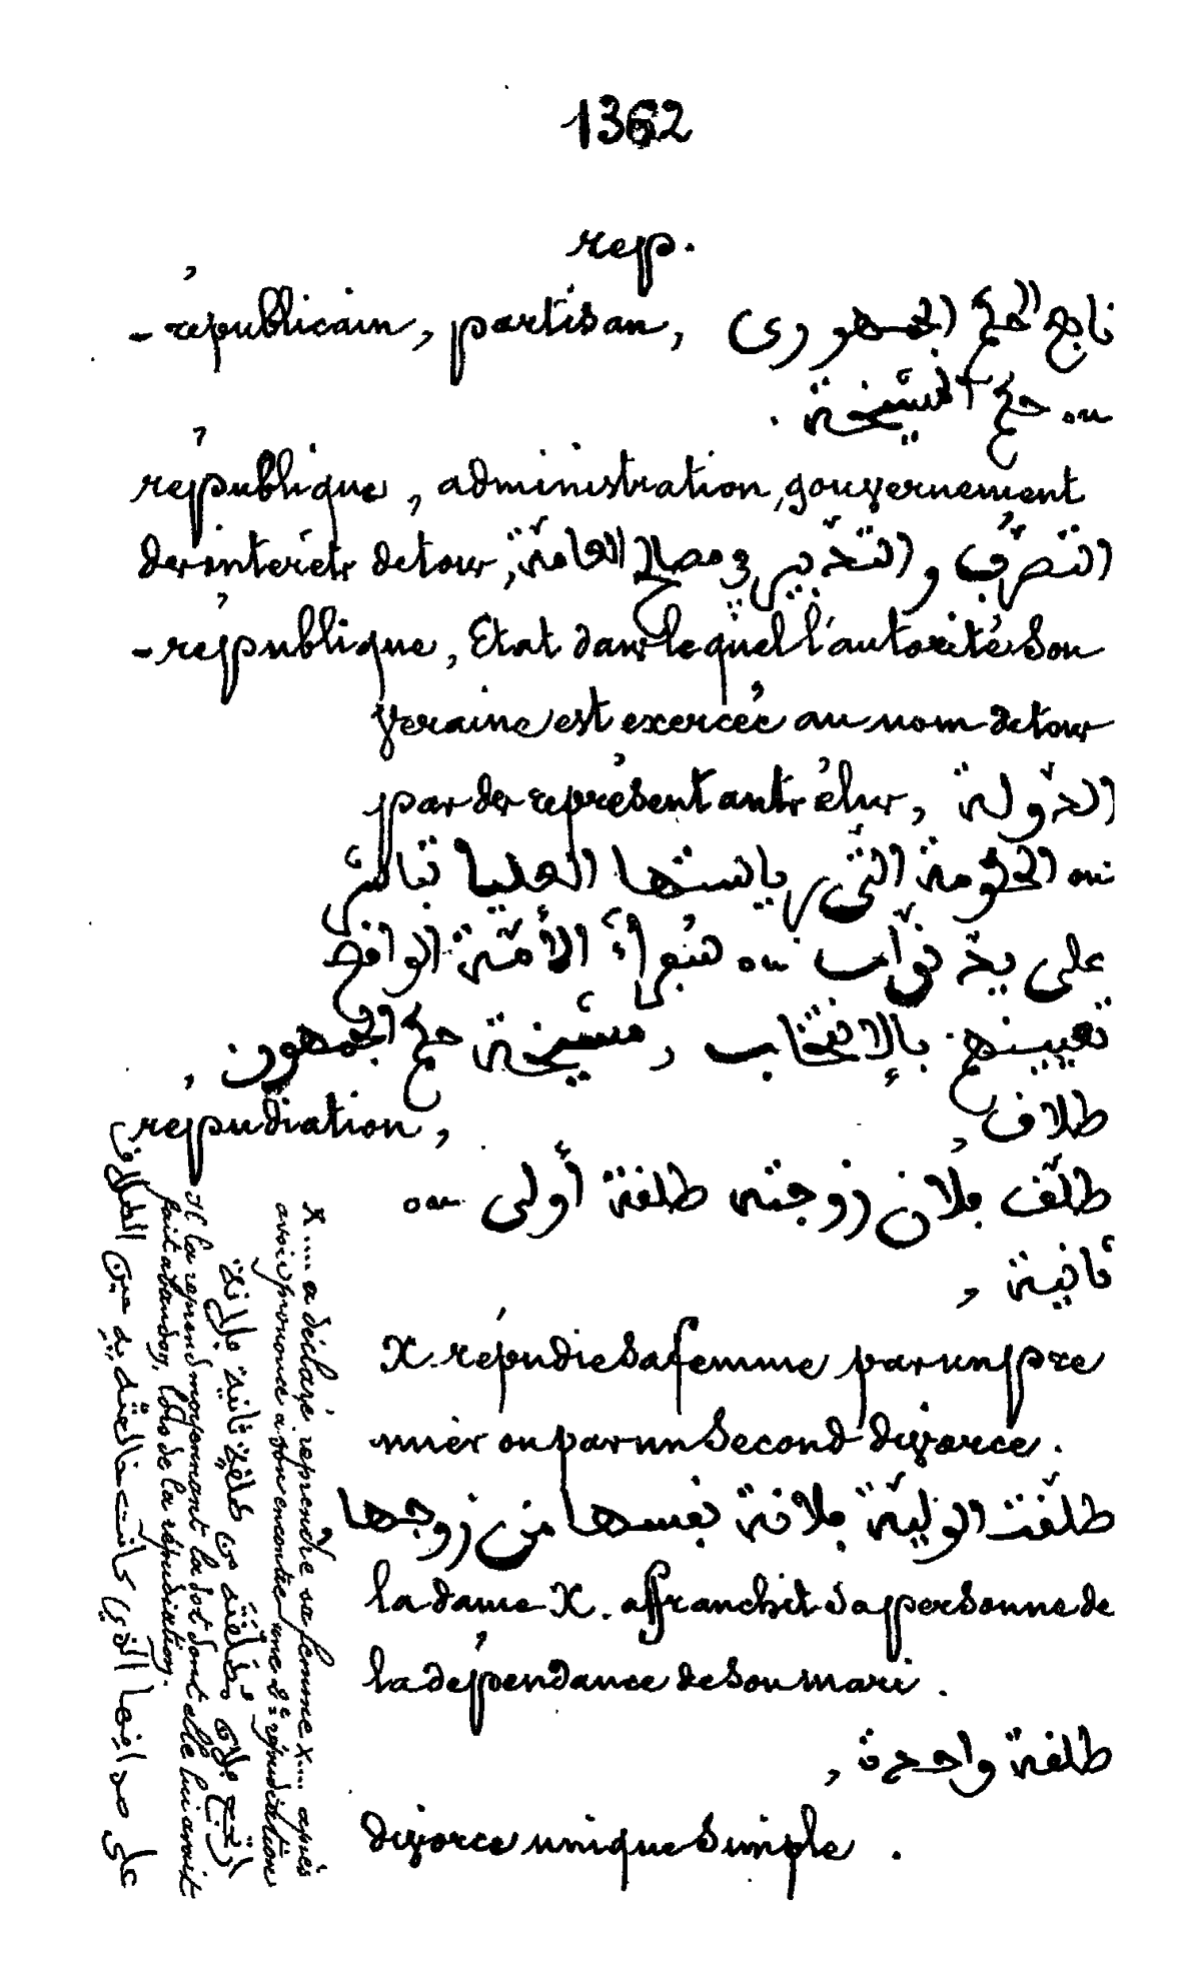 1362
rep.
- républicain, partisan, تابع الحكم الجمهورى
ou حكم المشيخة.
république, administration, gouvernement
des intérêts de tous, التصرّف والتدبير في مصالح العامّة
- république, Etat dans lequel l'autorité sou
veraine est exercée au nom de tous
par des représentants élus, الدّولة
ou الحكومة التّي رياستها العليا تباشر
على يد نوّاب ou سُفراء الأمّة الواقع
تعيينهم بالإنتخاب , مشيخة حكم الجمهور.
répudiation, طلاق,
طلّق فلان زوجته طلقة أولى ou
ثانية,
X. répudie sa femme par un pre
mier ou par un second divorce.
طلّقت الوليّة فلانة نفسها من زوجها
la dame X. affranchit sa personne de
la dépendance de son mari.
طلقة واحدة,
divorce unique simple.
X.... a déclaré reprendre sa femme X.... après
avoir prononcé à son encontre une 2e répudiation
ارتجع فلان مطلّقته من طلقة ثانية فلانة
il la reprend moyennant la dot dont elle lui avait
fait abandon, lors de la répudiation.
على صداقها الذي كانت خالعته به حين الطلاق